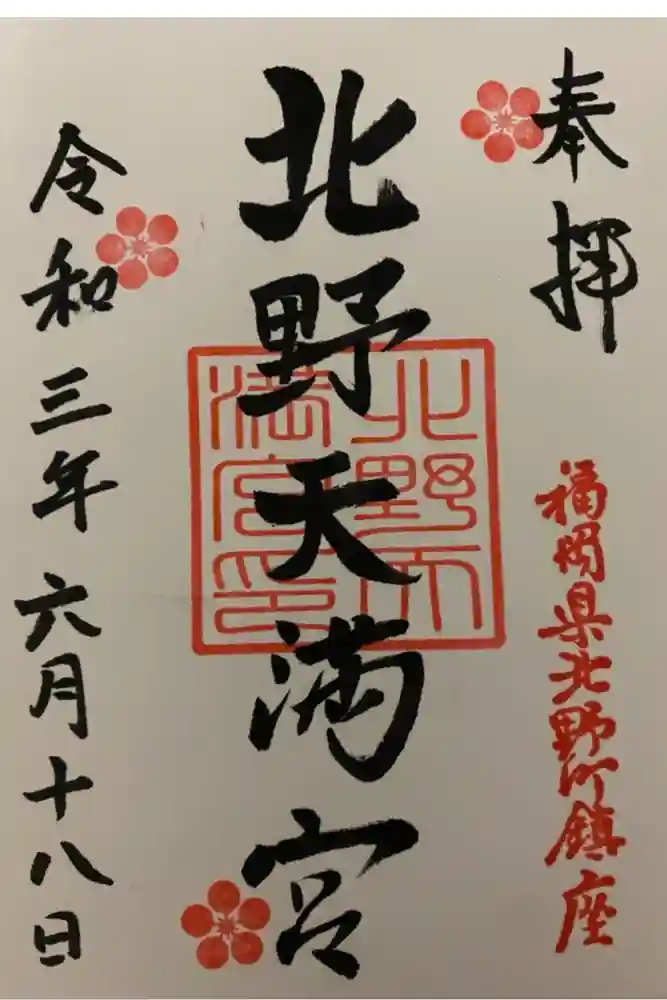 奉拝
福岡県北野町鎮座
北野天満宮
北野天満宮印
令和三年六月十八日